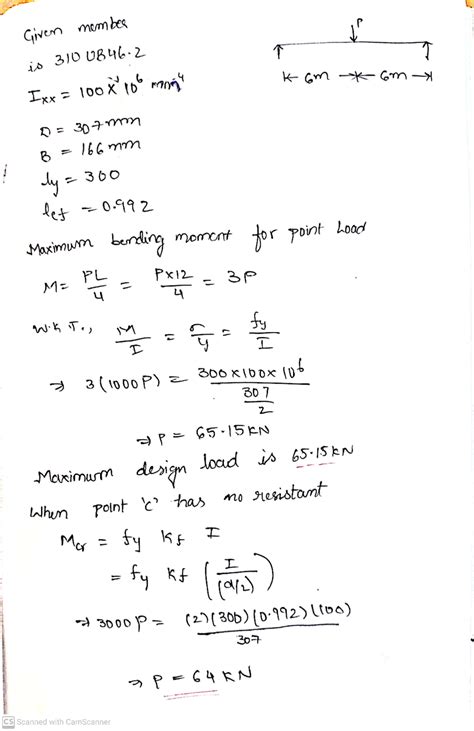 Given member
is 310 UB46.2
Ixx = 100 x 10^6 mm^4
D = 307 mm
B = 166 mm
fy = 300
kf = 0.992
P
6m 6m
Maximum bending moment for point Load
M = PL/4 = Px12/4 = 3P
W.K.T., M/I = σ/y = fy/I
⇒ 3(1000P) = 300x100x10^6 / (307/2)
⇒ P = 65.15KN
Maximum design load is 65.15KN
When point 'c' has no resistant
Mcr = fy Kf I
= fy Kf (I/(d/2))
⇒ 3000P = (2)(300)(0.992)(100) / 307
⇒ P = 64 KN
CS Scanned with CamScanner